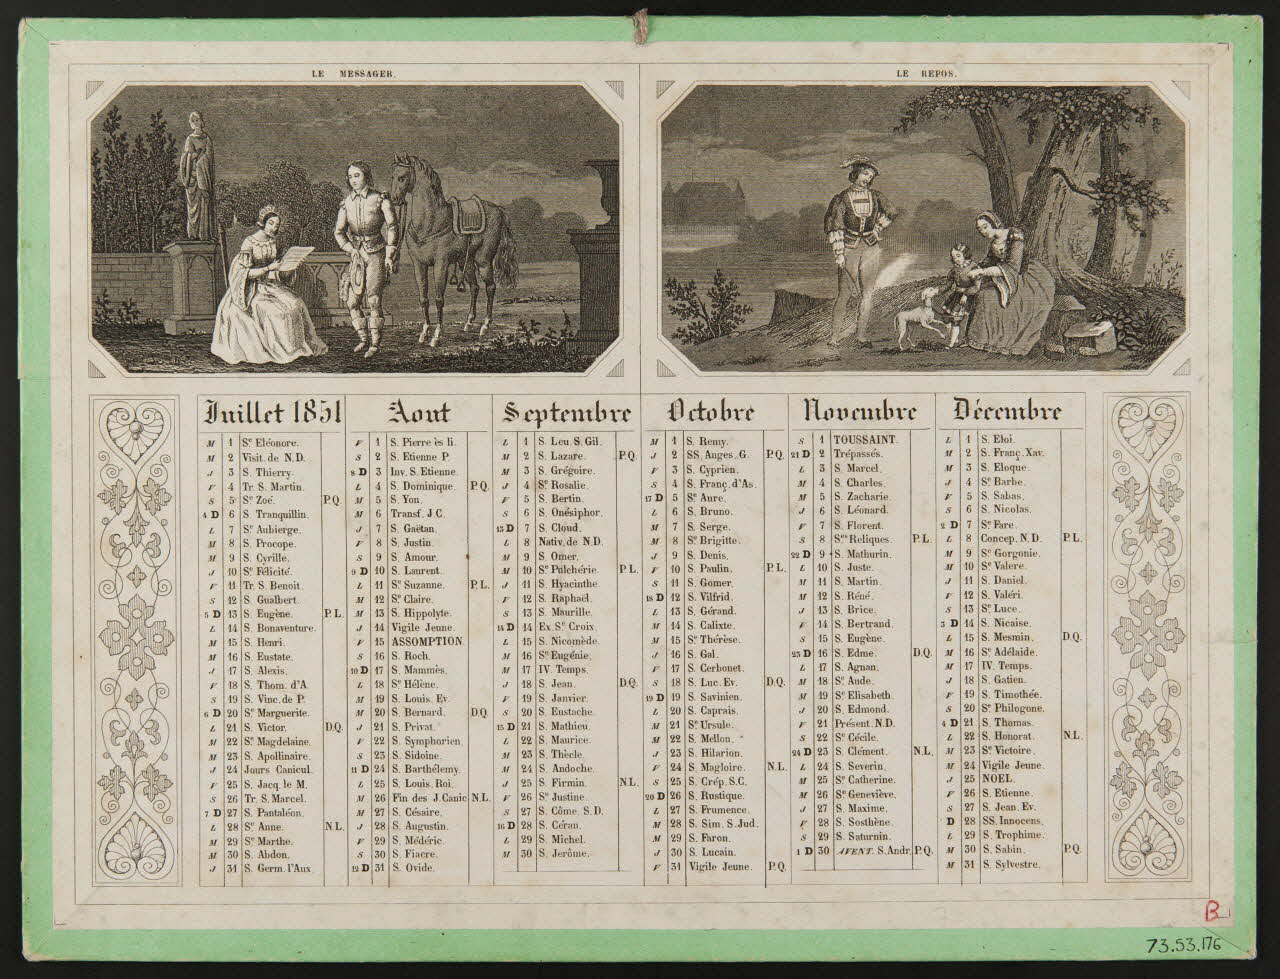 LE MESSAGER.
LE REPOS.
Juillet 1851
M 1 Se Eléonore.
M 2 Visit. de N.D.
J 3 S. Thierry.
V 4 Tr. S. Martin.
S 5 Se Zoé. P.Q.
4 D 6 S. Tranquillin.
L 7 Se Aubierge.
M 8 S. Procope.
M 9 S. Cyrille.
J 10 Se Félicité.
V 11 Tr. S. Benoit.
S 12 S. Gualbert.
5 D 13 S. Eugène. P.L.
L 14 S. Bonaventure.
M 15 S. Henri.
M 16 S. Eustate.
J 17 S. Alexis.
V 18 S. Thom. d'A.
S 19 S. Vinc. de P.
6 D 20 Se Marguerite.
L 21 S. Victor. D.Q.
M 22 Se Magdelaine.
M 23 S. Apollinaire.
J 24 Jours Canicul.
V 25 S. Jacq. le M.
S 26 Tr. S. Marcel.
7 D 27 S. Pantaléon.
L 28 Se Anne. N.L.
M 29 Se Marthe.
M 30 S. Abdon.
J 31 S. Germ. l'Aux
Aout
V 1 S. Pierre ès li.
S 2 S. Etienne P.
8 D 3 Inv. S. Etienne.
L 4 S. Dominique. P.Q.
M 5 S. Yon.
M 6 Transf. J.C.
J 7 S. Gaëtan.
V 8 S. Justin.
S 9 S. Amour.
9 D 10 S. Laurent.
L 11 Se Suzanne. P.L.
M 12 Se Claire.
M 13 S. Hippolyte.
J 14 Vigile Jeune.
V 15 ASSOMPTION.
S 16 S. Roch.
10 D 17 S. Mammès.
L 18 Se Hélène.
M 19 S. Louis. Ev.
M 20 S. Bernard. D.Q.
J 21 S. Privat.
V 22 S. Symphorien.
S 23 S. Sidoine.
11 D 24 S. Barthélemy.
L 25 S. Louis. Roi.
M 26 Fin des J. Canic N.L.
M 27 S. Césaire.
J 28 S. Augustin.
V 29 S. Médéric.
S 30 S. Fiacre.
12 D 31 S. Ovide.
Septembre
L 1 S. Leu. S. Gil.
M 2 S. Lazare. P.Q.
M 3 S. Grégoire.
J 4 Se Rosalie.
V 5 S. Bertin.
S 6 S. Onésiphor.
13 D 7 S. Cloud.
L 8 Nativ. de N.D.
M 9 S. Omer.
M 10 Se Pulchérie. P.L.
J 11 S. Hyacinthe.
V 12 S. Raphaël.
S 13 S. Maurille.
14 D 14 Ex. Se Croix.
L 15 S. Nicomède.
M 16 Se Eugénie.
M 17 IV. Temps.
J 18 S. Jean. D.Q.
V 19 S. Janvier.
S 20 S. Eustache.
15 D 21 S. Mathieu.
L 22 S. Maurice.
M 23 S. Thècle.
M 24 S. Andoche.
J 25 S. Firmin. N.L.
V 26 Se Justine.
S 27 S. Côme. S.D.
16 D 28 S. Céran.
L 29 S. Michel.
M 30 S. Jerôme.
Octobre
M 1 S. Remy.
J 2 SS. Anges. G. P.Q.
V 3 S. Cyprien.
S 4 S. Franç. d'As.
17 D 5 Se Aure.
L 6 S. Bruno.
M 7 S. Serge.
M 8 Se Brigitte.
J 9 S. Denis.
V 10 S. Paulin. P.L.
S 11 S. Gomer.
18 D 12 S. Vilfrid.
L 13 S. Gérand.
M 14 S. Calixte.
M 15 Se Thérèse.
J 16 S. Gal.
V 17 S. Cerbonet.
S 18 S. Luc. Ev. D.Q.
19 D 19 S. Savinien.
L 20 S. Caprais.
M 21 Se Ursule.
M 22 S. Mellon.
J 23 S. Hilarion.
V 24 S. Magloire. N.L.
S 25 S. Crép. S.C.
20 D 26 S. Rustique.
L 27 S. Frumence.
M 28 S. Sim. S. Jud.
M 29 S. Faron.
J 30 S. Lucain.
V 31 Vigile Jeune. P.Q.
Novembre
S 1 TOUSSAINT.
21 D 2 Trépassés.
L 3 S. Marcel.
M 4 S. Charles.
M 5 S. Zacharie.
J 6 S. Léonard.
V 7 S. Florent.
S 8 Stes Reliques. P.L.
22 D 9 S. Mathurin.
L 10 S. Juste.
M 11 S. Martin.
M 12 S. Réné.
J 13 S. Brice.
V 14 S. Bertrand.
S 15 S. Eugène.
23 D 16 S. Edme. D.Q.
L 17 S. Agnan.
M 18 Se Aude.
M 19 Se Elisabeth.
J 20 S. Edmond.
V 21 Présent. N.D.
S 22 Se Cécile.
24 D 23 S. Clément. N.L.
L 24 S. Severin.
M 25 Se Catherine.
M 26 Se Geneviève.
J 27 S. Maxime.
V 28 S. Sosthène.
S 29 S. Saturnin.
1 D 30 AVENT. S. Andr. P.Q.
Décembre
L 1 S. Eloi.
M 2 S. Franç. Xav.
M 3 S. Eloque.
J 4 Se Barbe.
V 5 S. Sabas.
S 6 S. Nicolas.
2 D 7 Se Fare.
L 8 Concep. N.D. P.L.
M 9 Se Gorgonie.
M 10 Se Valere.
J 11 S. Daniel.
V 12 S. Valéri.
S 13 Se Luce.
3 D 14 S. Nicaise.
L 15 S. Mesmin. D.Q.
M 16 Se Adélaide.
M 17 IV. Temps.
J 18 S. Gatien.
V 19 S. Timothée.
S 20 Se Philogone.
4 D 21 S. Thomas.
L 22 S. Honorat. N.L.
M 23 Se Victoire.
M 24 Vigile Jeune.
J 25 NOEL.
V 26 S. Etienne.
S 27 S. Jean. Ev.
D 28 SS. Innocens.
L 29 S. Trophime.
M 30 S. Sabin. P.Q.
M 31 S. Sylvestre.
B
73.53.176